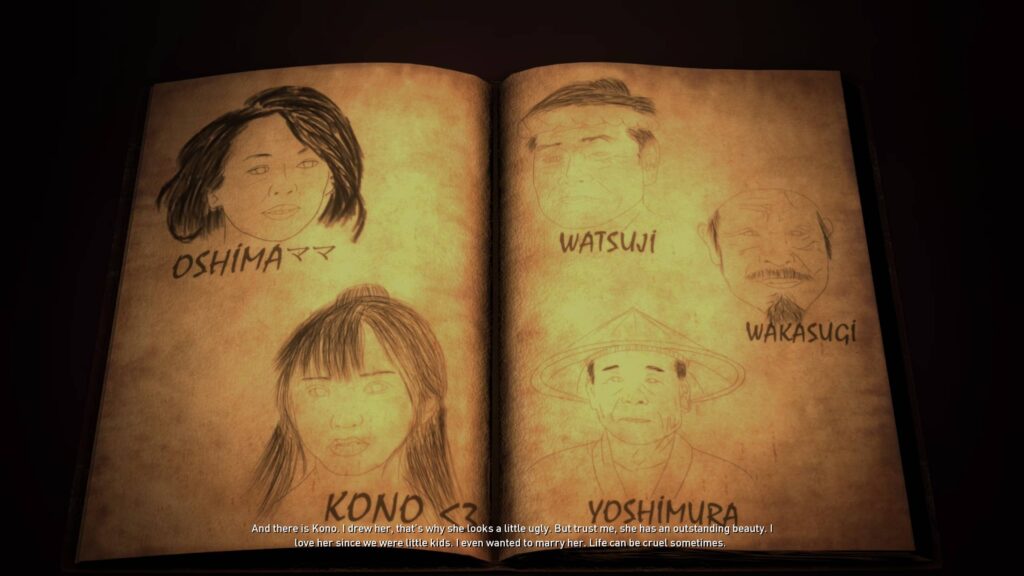 OSHIMAママ
WATSUJI
WAKASUGI
KONO <3
YOSHIMURA
And there is Kono. I drew her, that's why she looks a little ugly. But trust me, she has an outstanding beauty. I
love her since we were little kids. I even wanted to marry her. Life can be cruel sometimes.